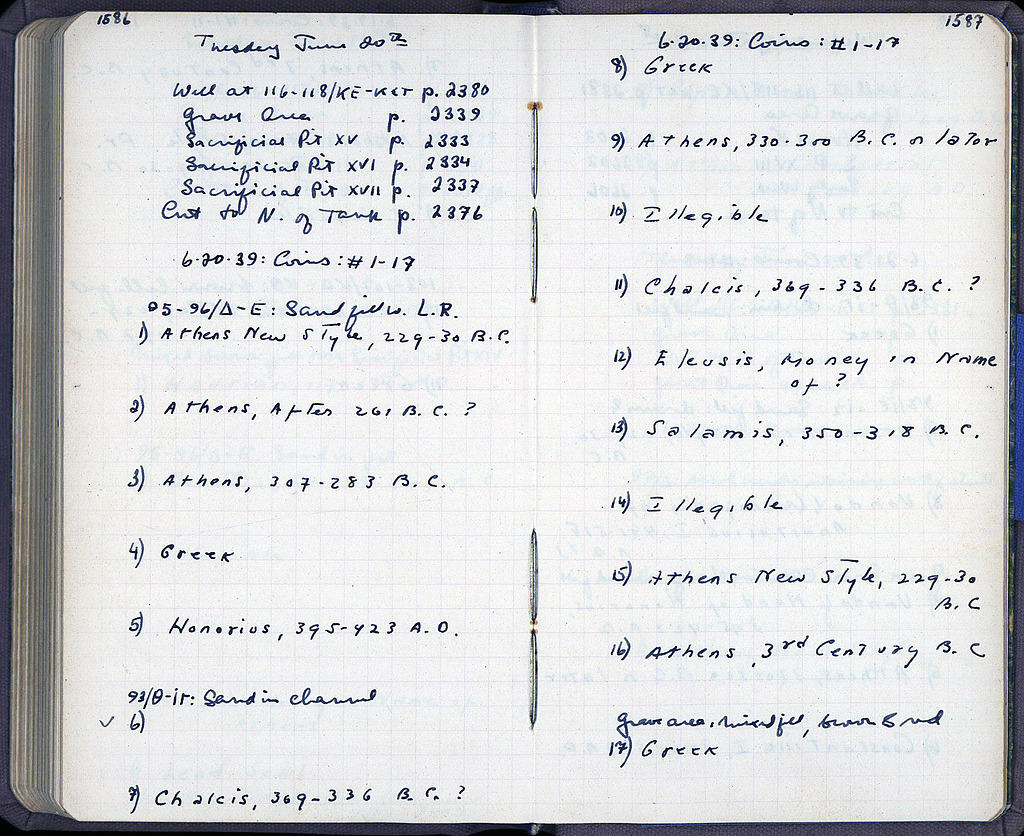 1586
Tuesday June 20th
Well at 116-118/ΚΕ-ΚΣΤ p. 2380
Grave Area p. 2339
Sacrificial Pit XV p. 2333
Sacrificial Pit XVI p. 2334
Sacrificial Pit XVII p. 2337
Cut to N. of Tank p. 2376
6-20-39: Coins: #1-17
95-96/Δ-Ε: Sand fill L.R.
1) Athens New Style, 229-30 B.C.
2) Athens, After 261 B.C. ?
3) Athens, 307-283 B.C.
4) Greek
5) Honorius, 395-423 A.D.
93/Θ-ΙΓ: Sand in channel
✓ 6)
7) Chalcis, 369-336 B.C. ?
1587
6-20-39: Coins: #1-17
8) Greek
9) Athens, 330-300 B.C. or later
10) Illegible
11) Chalcis, 369-336 B.C. ?
12) Eleusis, Money in Name
of ?
13) Salamis, 350-318 B.C.
14) Illegible
15) Athens New Style, 229-30
B.C
16) Athens, 3rd Century B.C
Grave area, mixed fill, brown & red
17) Greek